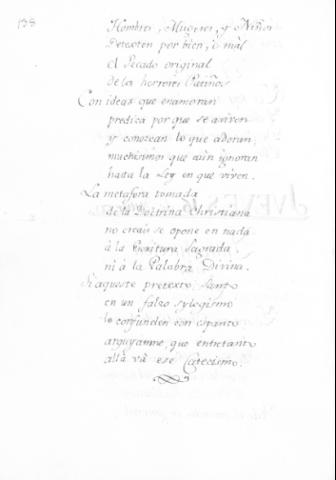 138
Hombres, Mugeres, y Niños
Detesten por bien, o mal
el Pecado original
de los horrores Patiños.
Con ideas que enamoran
predica por que se aviven
y conozcan lo que adoran
muchisimos que aun ignoran
hasta la Ley en que viven.
La metafora tomada
de la Doctrina Christiana
no creais se opone en nada
à la Escritura Sagrada
ni à la Palabra Divina.
Si aqueste pretexto Santo
en un falso sylogismo
lo confunden con espanto
arguyanme, que entretanto
allà và ese Catecismo.